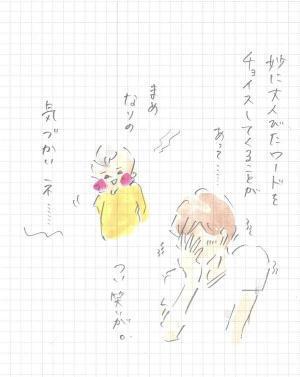 妙に大人びたワードを
チョイスしてくることが
あって……
まめ
なりの
気づかいネ……
つい笑いが。